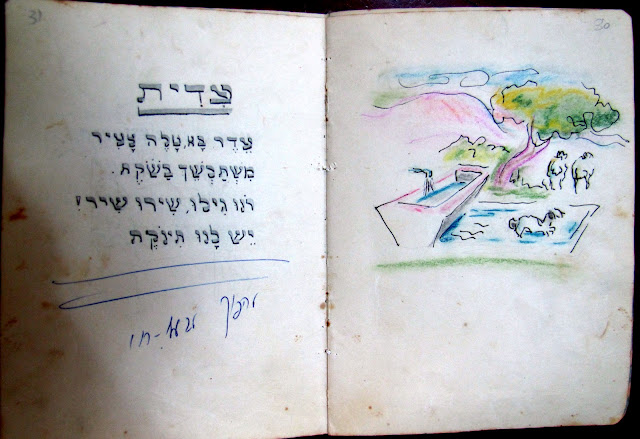 30
31
עִדִית
עֵדֶר בָּא, טָלֶה צָעִיר
מִשְׁתַּכְשֵׁךְ בַּשֹּׁקֶת.
רֹנּוּ גִילוּ, שִׁירוּ שִׁיר!
יֵשׁ לָנוּ תִּינֹקֶת